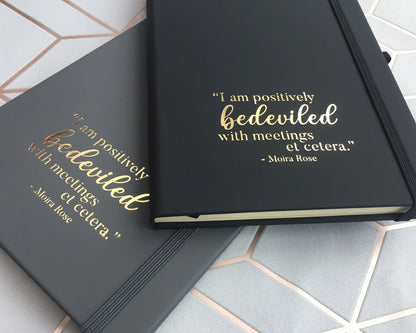 "I am positively
bedeviled
with meetings
et cetera."
- Moira Rose
"I am positively
bedeviled
with meetings
et cetera."
- Moira Rose